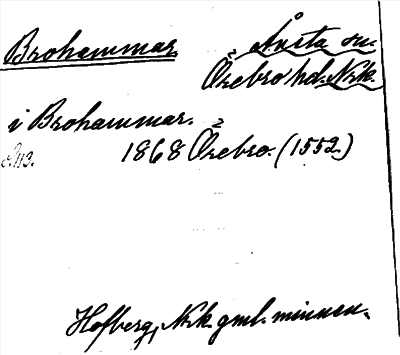 Brohammar Årsta sn.
Örebro hd. Nrk.
i Brohammar.
1868 Örebro. (1552.)
Hofberg, Nrk. gml. minnen.